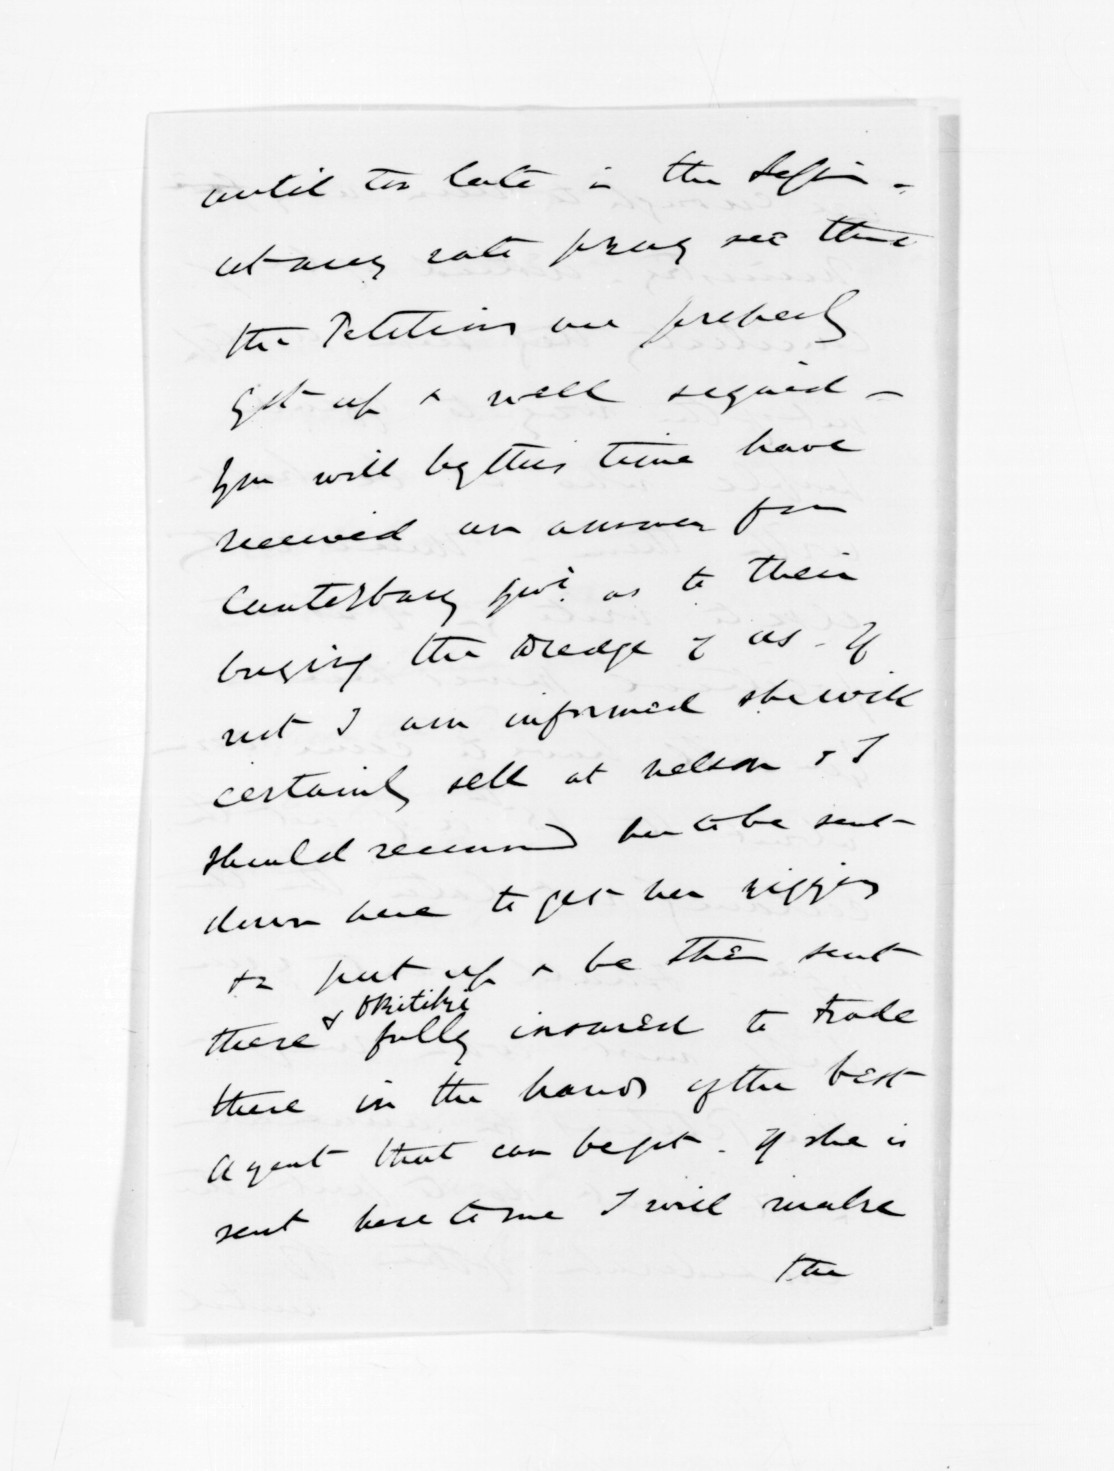 until too late in the Session -
at any rate pray see that
the Petitions are properly
got up & well signed -
You will by this time have
received an answer from
Canterbury Govt. as to their
buying the Dredge of us. If
not I am informed she will
certainly sell at Nelson & I
should recommend her to be sent
down here to get her rigging
&c put up & be then sent
there & Okitiki fully insured to trade
there in the hands of the best
Agent that can be got. If she is
sent here to me I will make
the